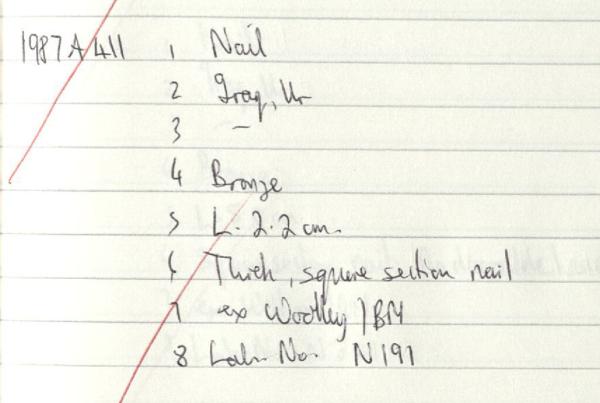 1987A411 1 Nail
2 Iraq, Ur
3 —
4 Bronze
5 L. 2.2 cm.
6 Thick, square section nail
7 ex Woolley / BM
8 Lab. No. N191